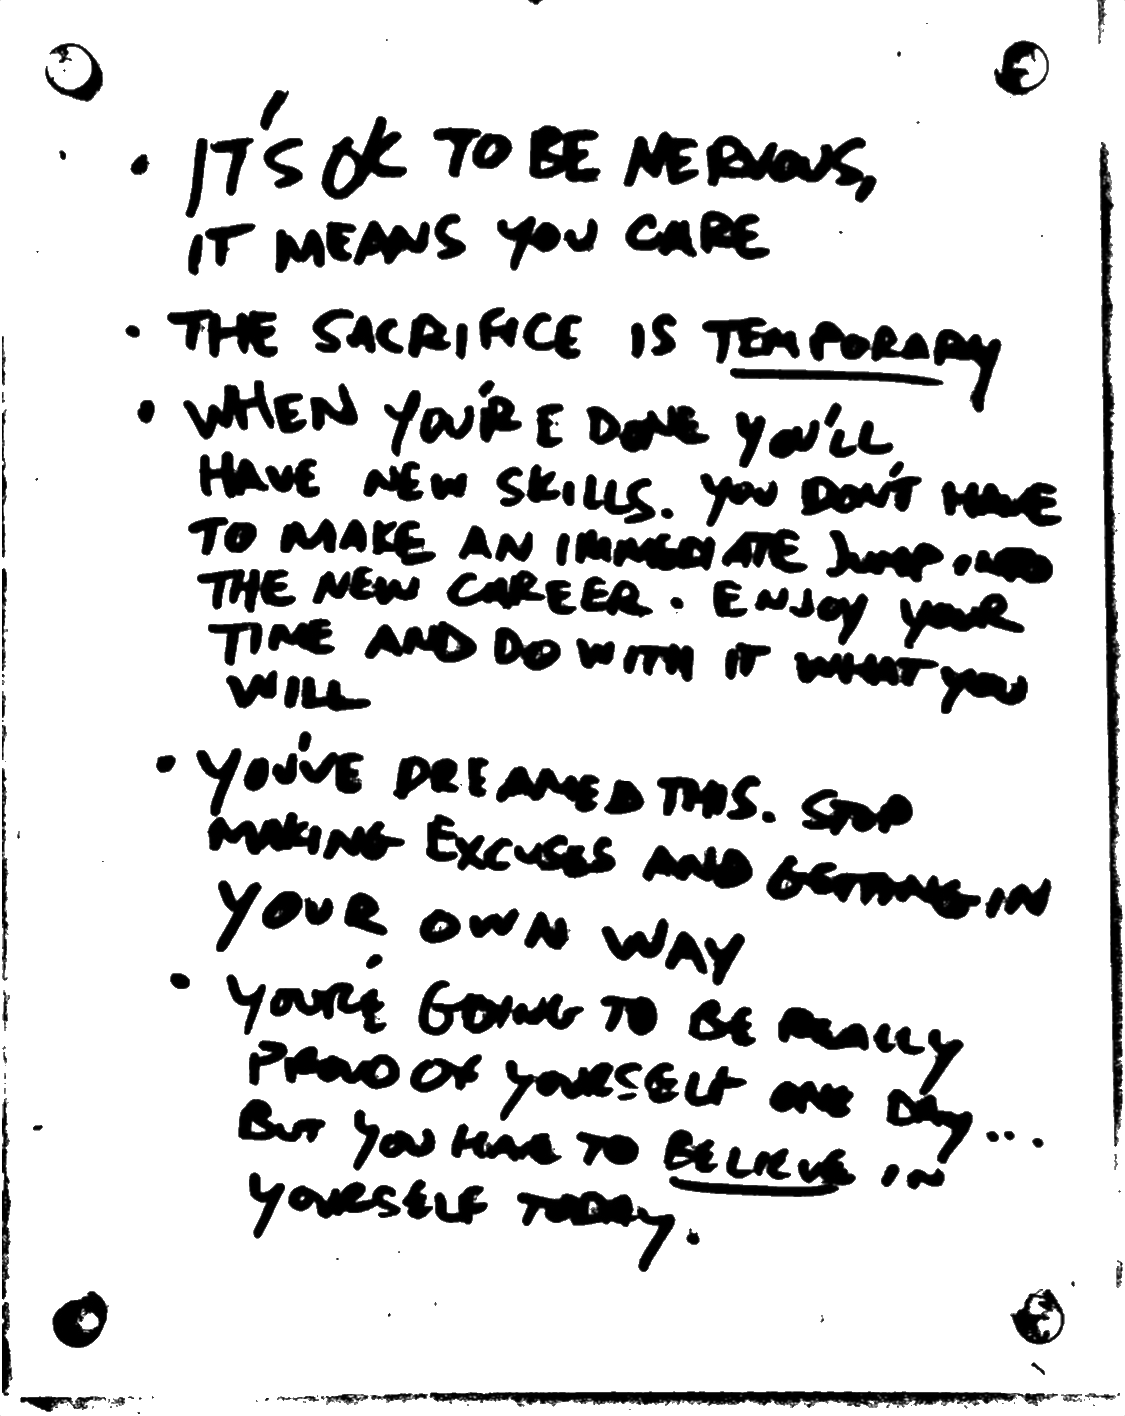 • IT'S OK TO BE NERVOUS,
IT MEANS YOU CARE
• THE SACRIFICE IS TEMPORARY
• WHEN YOU'RE DONE YOU'LL
HAVE NEW SKILLS. YOU DON'T HAVE
TO MAKE AN IMMEDIATE JUMP INTO
THE NEW CAREER. ENJOY YOUR
TIME AND DO WITH IT WHAT YOU
WILL
• YOU'VE DREAMED THIS. STOP
MAKING EXCUSES AND GETTING IN
YOUR OWN WAY
• YOU'RE GOING TO BE REALLY
PROUD OF YOURSELF ONE DAY...
BUT YOU HAVE TO BELIEVE IN
YOURSELF TODAY.